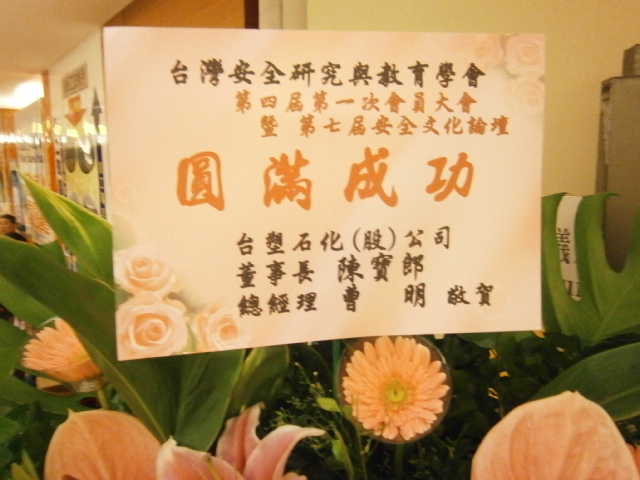 台灣安全研究與教育學會
第四屆第一次會員大會
暨 第七屆安全文化論壇
圓滿成功
台塑石化(股)公司
董事長 陳寶郎
總經理 曹 明 敬賀
議